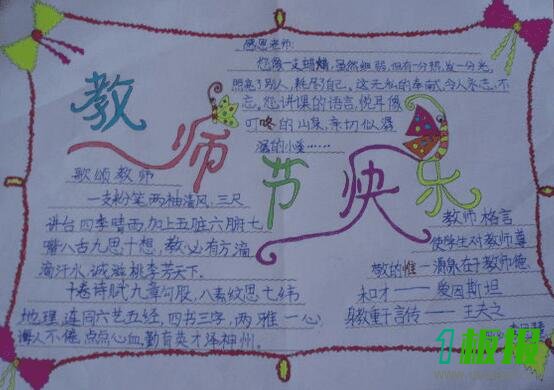 感恩老师:
您像一支蜡烛,虽然细弱,但有一分热,发一分光,
照亮了别人,耗尽了自己。这无私的奉献,令人永志不
忘。您讲课的语言,悦耳像
叮咚的山泉,亲切似潺
潺的小溪……
教师节快乐
歌颂教师
一支粉笔两袖清风,三尺
讲台四季晴雨,加上五脏六腑七
嘴八舌九思十想,教必有方,滴
滴汗水,诚滋桃李芳天下。
十卷诗赋九章勾股,八索文思七纬
地理,连同六艺五经,四书三字,两雅一心,
诲人不倦,点点心血,勤育英才泽神州。
教师格言
使学生对教师尊
敬的惟一源泉在于教师德
和才——爱因斯坦
身教重于言传——王夫之
1板报